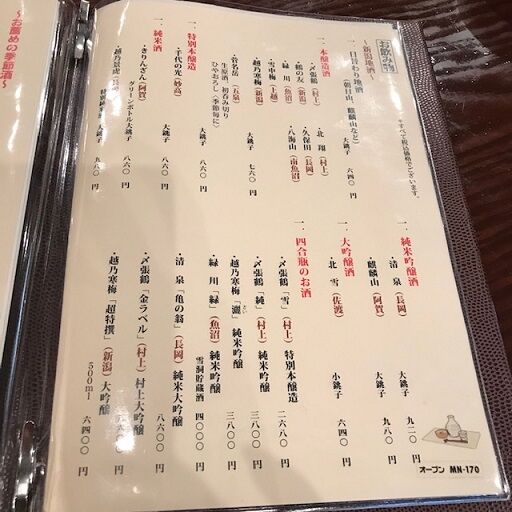 ～お薦めの季節酒～
お飲み物
～新潟地酒～
＊すべて税込価格でございます。
一．日替わり地酒
（朝日山、麒麟山など）
大銚子 六四〇円
一．本醸造酒
・〆張鶴（村上） ・北翔（村上）
・鶴の友（新潟） ・久保田（長岡）
・緑川（魚沼） ・八海山（南魚沼）
・雪中梅（上越）
・越乃寒梅（新潟）
大銚子 七六〇円
・菅名岳（五泉）
生原酒、初呑み切り
ひやおろし（季節毎に）
大銚子 八六〇円
一．特別本醸造
・千代の光（妙高）
大銚子 八六〇円
一．純米酒
・きりんざん（阿賀）
グリーンボトル大銚子 八六〇円
・越乃景虎
特別純米大銚子 九八〇円
一．純米吟醸酒
・清泉（長岡） 大銚子 九二〇円
・麒麟山（阿賀） 大銚子 九八〇円
一．大吟醸酒
・北雪（佐渡） 小銚子 六四〇円
一．四合瓶のお酒
・〆張鶴「雪」（村上）特別本醸造 二六八〇円
・〆張鶴「純」（村上）純米吟醸 三八〇〇円
・越乃寒梅「灑」純米吟醸 三八〇〇円
・緑川「緑」（魚沼）純米吟醸
雪洞貯蔵酒 四〇〇〇円
・清泉「亀の翁」（長岡）純米大吟醸 八六〇〇円
・〆張鶴「金ラベル」（村上）村上大吟醸
・越乃寒梅「超特撰」（新潟）大吟醸
500ml 六四〇〇円
オープン MN-170